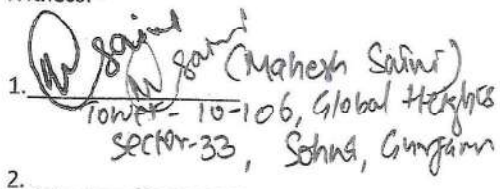 1. Saini Saini (Mahesh Saini)
Tower- 10-106, Global Heights
Sector-33, Sohna, Gurgaon
2.